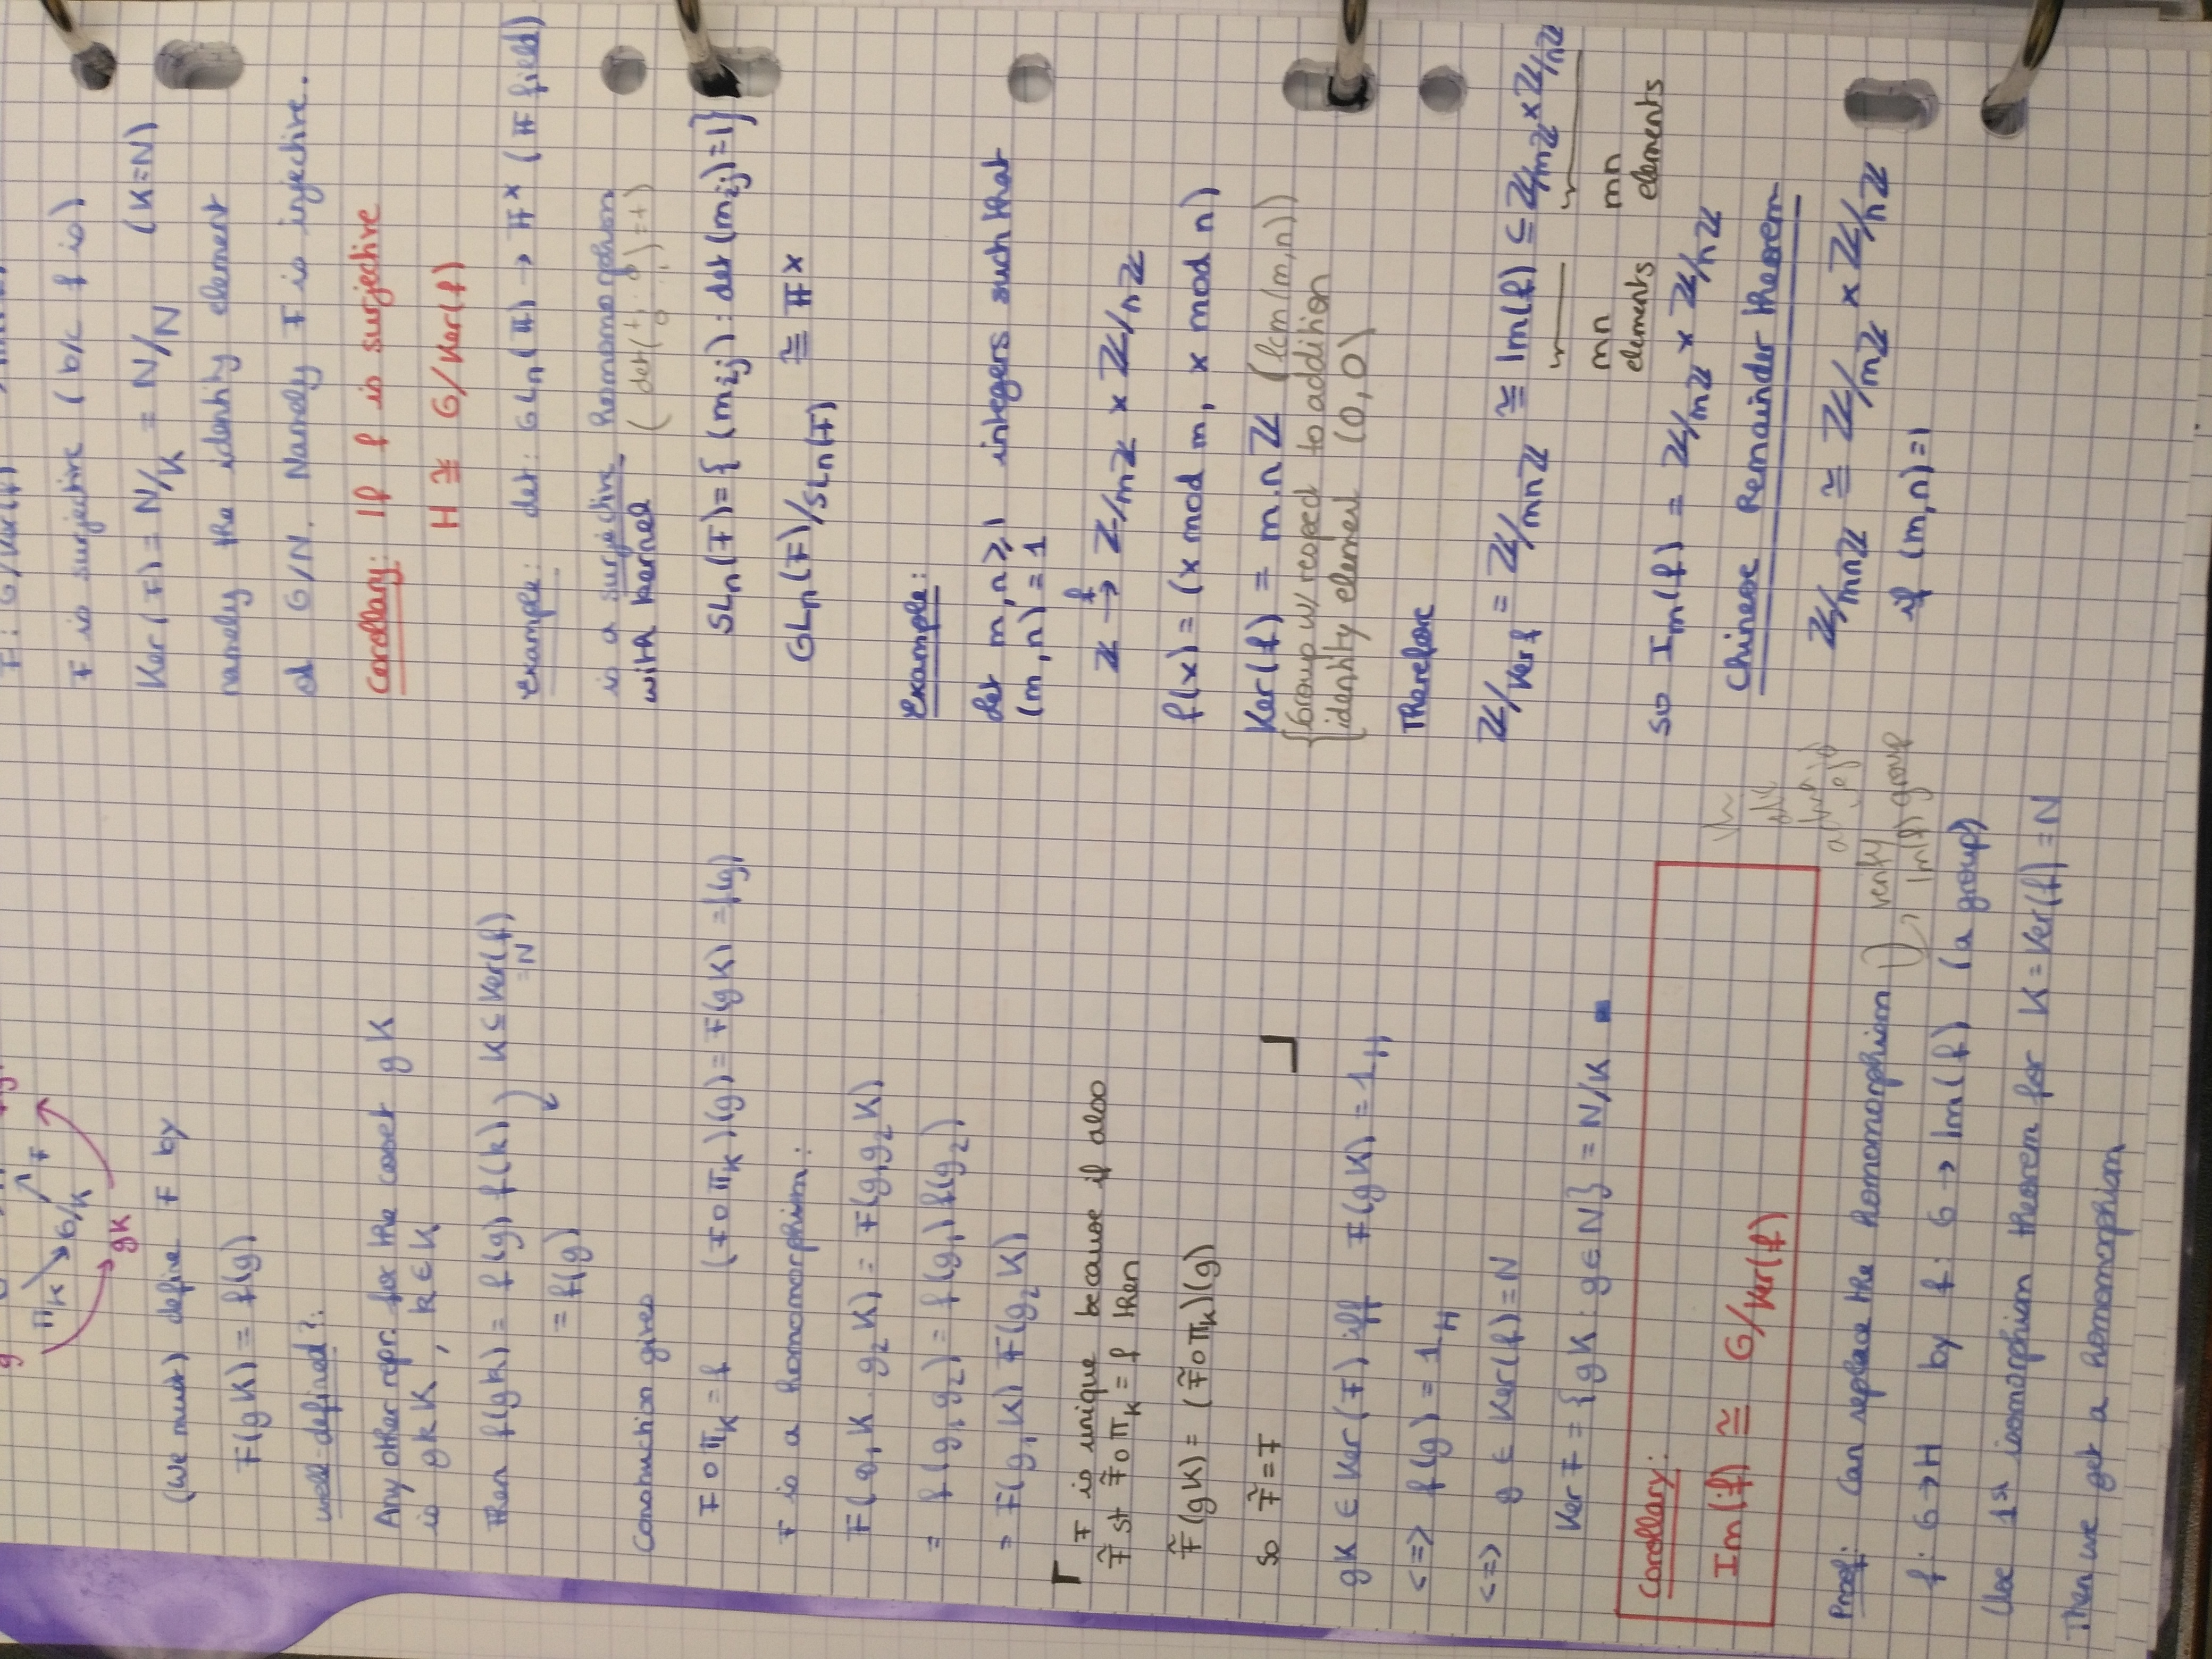 g
π_K G/K F
gK
(We must) define F by
F(gK) = f(g)
well-defined?:
Any other repr. for the coset gK
is gkK, k ∈ K
Then f(gk) = f(g) f(k) K ⊆ Ker(f)
= N
= f(g)
Construction gives
F ∘ π_K = f (F ∘ π_K)(g) = F(gK) = f(g)
F is a homomorphism:
F(g₁K · g₂K) = F(g₁g₂K)
= f(g₁g₂) = f(g₁) f(g₂)
= F(g₁K) F(g₂K)
F is unique because if also
F̃ st F̃ ∘ π_K = f then
F̃(gK) = (F̃ ∘ π_K)(g)
so F̃ = F
gK ∈ Ker(F) iff F(gK) = 1_H
<=> f(g) = 1_H
<=> g ∈ Ker(f) = N
Ker F = {gK : g ∈ N} = N/K
Corollary:
Im(f) ≅ G/Ker(f)
Proof: Can replace the homomorphism
verify
Im(f) group
f: G → H by f: G → Im(f) (a group)
Use 1st isomorphism theorem for K = Ker(f) = N
Then we get a homomorphism
F: G/Ker(f)
F is surjective (b/c f is)
Ker(F) = N/K = N/N (K=N)
namely the identity element
of G/N. Namely F is injective.
Corollary: If f is surjective
H ≅ G/Ker(f)
Example: det: GLₙ(F) → F^× (F field)
is a surjective homomorphism
with kernel
SLₙ(F) = {(m_ij) : det(m_ij) = 1}
GLₙ(F)/SLₙ(F) ≅ F^×
Example:
Let m, n ≥ 1 integers such that
(m, n) = 1
ℤ →f ℤ/mℤ × ℤ/nℤ
f(x) = (x mod m, x mod n)
Ker(f) = m·nℤ (lcm(m,n))
{Group w/ respect to addition
{identity element (0,0)
Therefore
ℤ/Ker f = ℤ/mnℤ ≅ Im(f) ⊆ ℤ/mℤ × ℤ/nℤ
mn elements mn elements
so Im(f) = ℤ/mℤ × ℤ/nℤ
Chinese Remainder theorem
ℤ/mnℤ ≅ ℤ/mℤ × ℤ/nℤ
if (m,n)=1